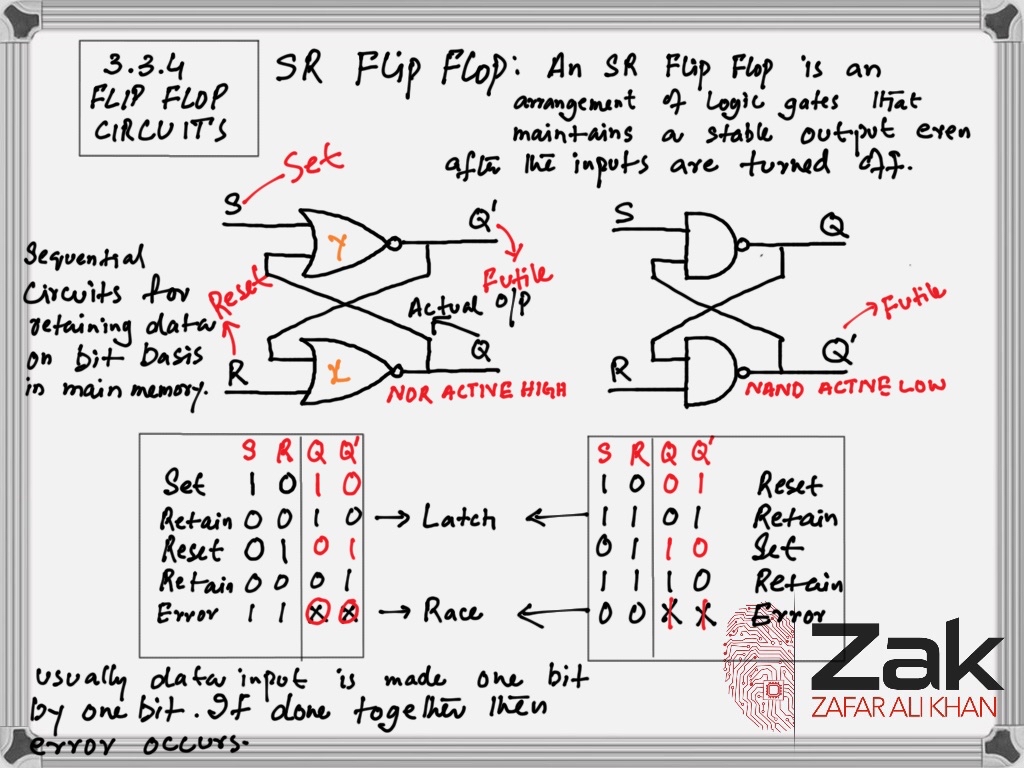 3.3.4
FLIP FLOP
CIRCUITS
SR Flip Flop: An SR Flip Flop is an
arrangement of logic gates that
maintains a stable output even
after the inputs are turned off.
Set
S
Y
Q'
Futile
Sequential
circuits for
retaining data
on bit basis
in main memory.
Reset
R
X
Actual O/P
Q
NOR ACTIVE HIGH
S
Q
Futile
R
Q'
NAND ACTIVE LOW
S R Q Q'
Set 1 0 1 0
Retain 0 0 1 0
Reset 0 1 0 1
Retain 0 0 0 1
Error 1 1 X X
Latch
Race
S R Q Q'
1 0 0 1 Reset
1 1 0 1 Retain
0 1 1 0 Set
1 1 1 0 Retain
0 0 X X Error
usually data input is made one bit
by one bit. If done together then
error occurs.
Zak
ZAFAR ALI KHAN